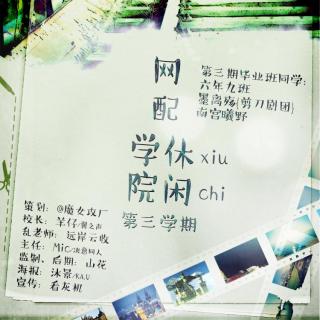 网配
学院
休闲
xiu
chi
第三学期
第三期毕业班同学:
六年九班
墨离殇(剪刀剧团)
南宫曦野
策划: @魔女攻厂
校长: 羊仔/翼之声
乱老师: 远岸云收
主任: Mic/决意同人
监制、后期: 山花
海报: 沐景/K.A.U
宣传: 看龙机